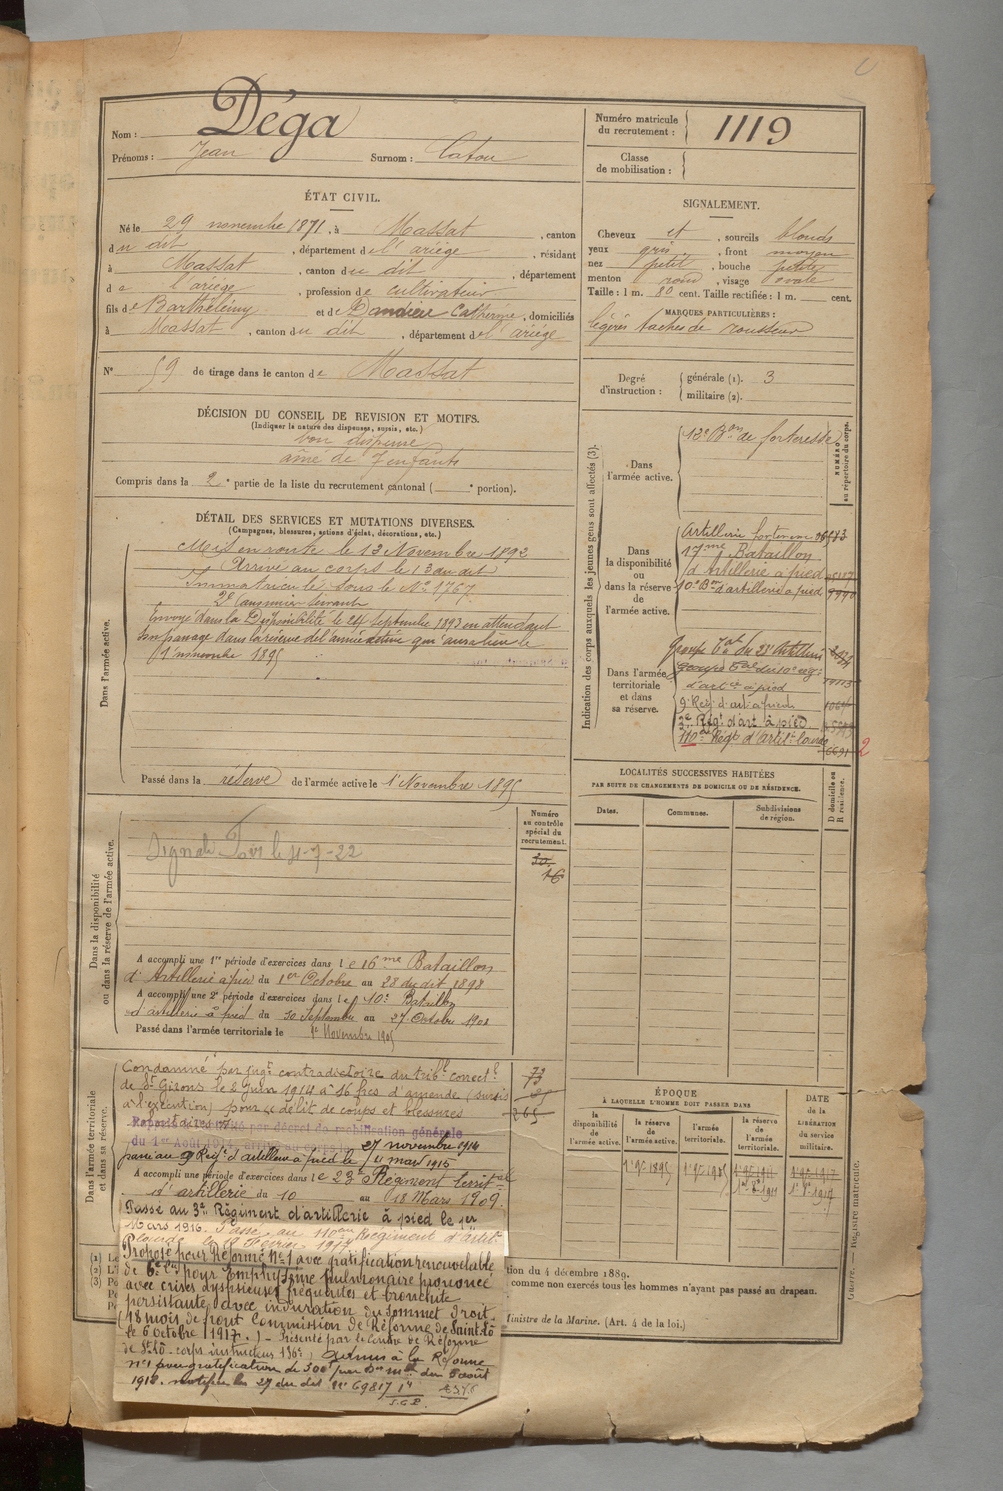 Nom : Déga
Prénoms : Jean Surnom : Catou
Numéro matricule du recrutement : 1119
Classe de mobilisation :
ÉTAT CIVIL.
Né le 29 novembre 1871, à Massat, canton
du dit, département de l'ariège, résidant
à Massat, canton du dit, département
de l'ariège, profession de cultivateur
fils de Barthélemy et de Dandieu Catherine, domiciliés
à Massat, canton du dit, département de l'ariège
N° 59 de tirage dans le canton de Massat
SIGNALEMENT.
Cheveux et, sourcils blonds
yeux gris, front moyen
nez petit, bouche petite
menton rond, visage ovale
Taille : 1 m. 80 cent. Taille rectifiée : 1 m. cent.
MARQUES PARTICULIÈRES :
légères taches de rousseur
Degré d'instruction : générale (1). 3
militaire (2).
DÉCISION DU CONSEIL DE REVISION ET MOTIFS.
(Indiquer la nature des dispenses, sursis, etc.)
bon dispensé
aîné de 7 enfants
Compris dans la 2e partie de la liste du recrutement cantonal ( e portion).
DÉTAIL DES SERVICES ET MUTATIONS DIVERSES.
(Campagnes, blessures, actions d'éclat, décorations, etc.)
Dans l'armée active.
Mis en route le 13 Novembre 1892
Arrivé au corps le 13 du dit
Immatriculé sous le N° 1767
2e Canonnier Servant
Envoyé dans la Disponibilité le 24 septembre 1893 en attendant
son passage dans la réserve de l'armée active qui aura lieu le
1er novembre 1895
Passé dans la réserve de l'armée active le 1er Novembre 1895
Indication des corps auxquels les jeunes gens sont affectés (3).
NUMÉRO au répertoire du corps.
Dans l'armée active.
13e Bon de forteresse
Dans la disponibilité ou dans la réserve de l'armée active.
Artillerie forteresse
17me Bataillon
d'Artillerie à pied
10e Bon d'artillerie à pied
Dans l'armée territoriale et dans sa réserve.
Groupe Tal du 23e Artillerie
Groupe Tal du 10e
d'artie à pied
9e Reg. d'art. à pied
3e Régt d'art. à pied
110e Régt d'Artie lourde
2
LOCALITÉS SUCCESSIVES HABITÉES
PAR SUITE DE CHANGEMENTS DE DOMICILE OU DE RÉSIDENCE.
Dates. Communes. Subdivisions de région. D domicile ou R résidence.
Dans la disponibilité ou dans la réserve de l'armée active.
Numéro au contrôle spécial du recrutement.
16
A accompli une 1re période d'exercices dans le 16me Bataillon
d'Artillerie à pied du 1er Octobre au 28 du dit 1898
A accompli une 2e période d'exercices dans le 10e Bataillon
d'artillerie à pied du 30 Septembre au 27 Octobre 1901
Passé dans l'armée territoriale le 1er Novembre 1905
Dans l'armée territoriale et dans sa réserve.
Condamné par jugt contradictoire du tribl correctl
de St Girons le 2 Juin 1914 à 16 frcs d'amende (sursis
à l'exécution) pour le délit de coups et blessures
volontaires
Rappelé à l'activité par décret de mobilisation générale
du 1er Août 1914, arrivé au corps le 27 novembre 1914
passé au 9 Reg. d'artillerie à pied le 11 mars 1915
A accompli une période d'exercices dans le 23e Régiment territal
d'artillerie du 10 au 18 Mars 1909.
Passé au 3e Régiment d'artillerie à pied le 1er
Mars 1916. Passé au 110eme Régiment d'artie
lourde le 12 Février 1917
Proposé pour Réforme N° 1 avec gratification renouvelable
de 6e Cie pour Emphysème pulmonaire prononcé
avec crises dyspnéiques fréquentes et bronchite
persistante avec induration du Sommet Droit.
(18 mois de front Commission de Réforme de Saint-Lô
le 6 octobre 1917.) - Présenté par le Centre de Réforme
de St Lô. corps instructeur 136e ; Admis à la Réforme
n° 1 pour gratification de 300f par Don mlle du 5 août
1918. notifiée le 27 du dit N° 69817
ÉPOQUE
À LAQUELLE L'HOMME DOIT PASSER DANS
la disponibilité de l'armée active. la réserve de l'armée active. l'armée territoriale. la réserve de l'armée territoriale. DATE de la LIBÉRATION du service militaire.
1er 9bre 1895 1er 9bre 1905 1er 9bre 1911 1er 9bre 1917
tion du 4 décembre 1889.
comme non exercés tous les hommes n'ayant pas passé au drapeau.
Ministre de la Marine. (Art. 4 de la loi.)
Guerre. Registre matricule.